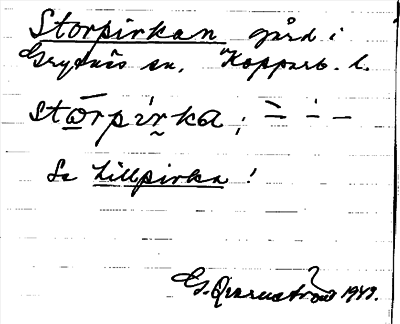 Storpirkan gård i
Grytnäs sn, Kopparb. l.
stārpìrka;
Se Lillpirka!
G. Qvarnström 1943.